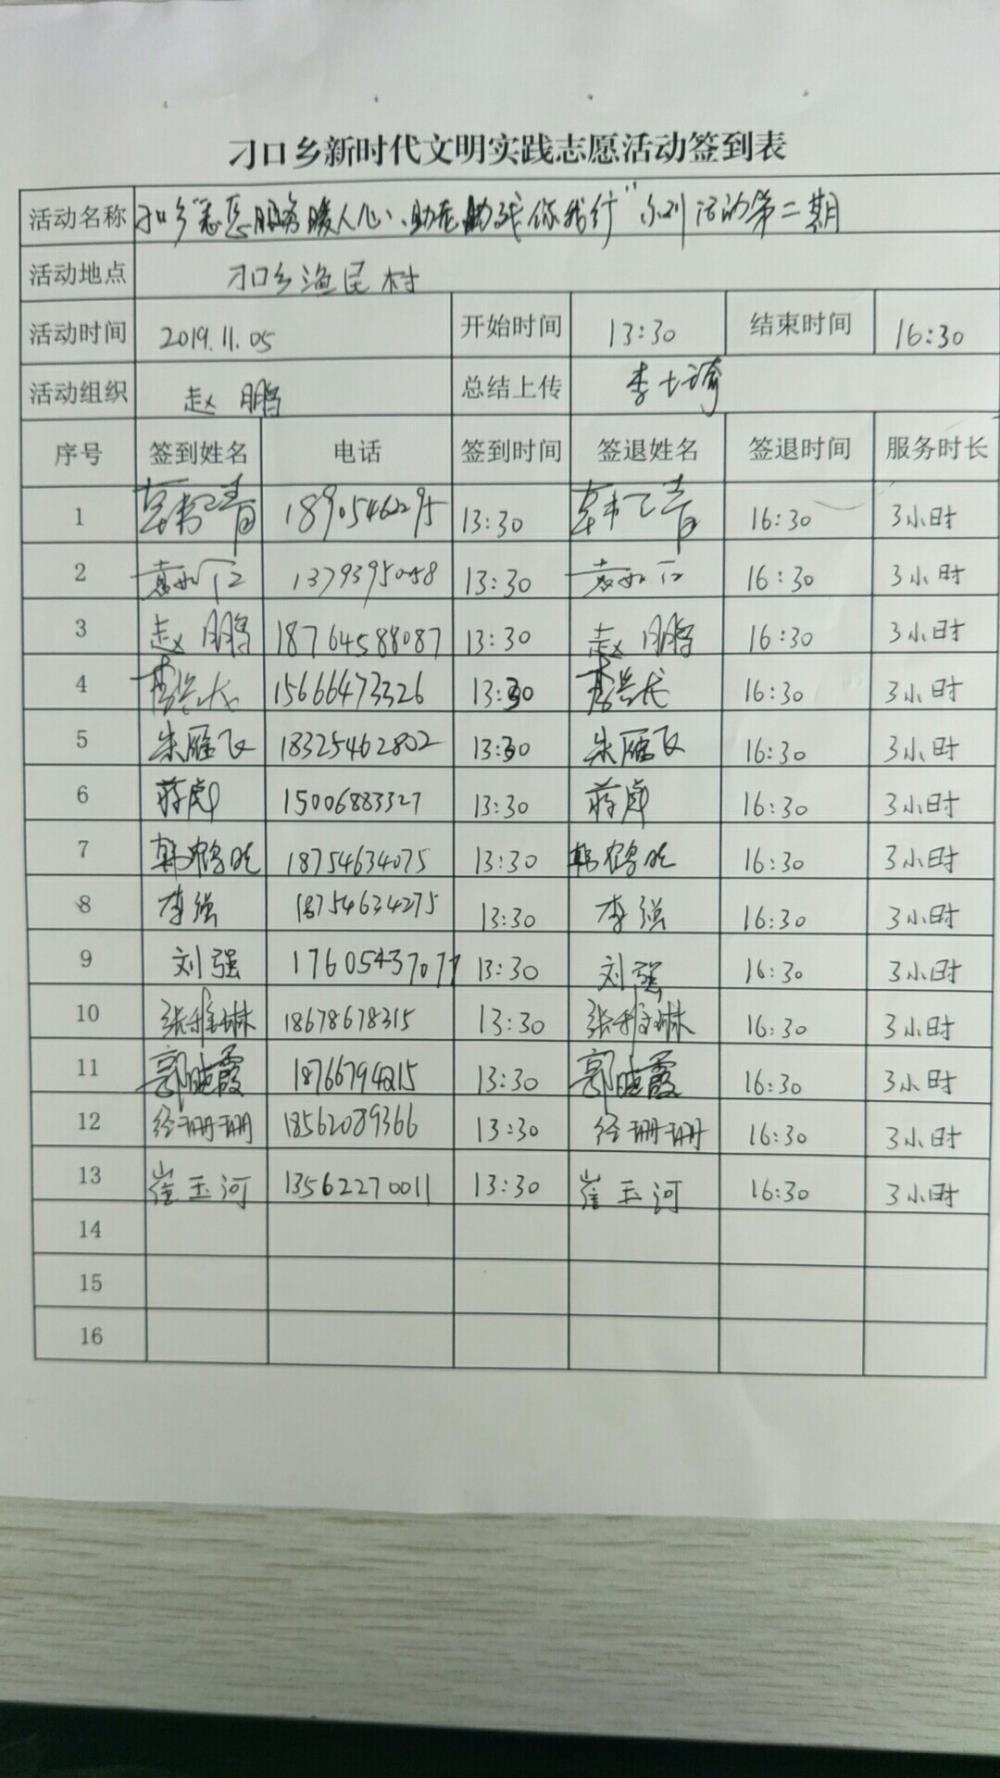 刁口乡新时代文明实践志愿活动签到表
活动名称 刁口乡"志愿服务暖人心、助老助残你我行"系列活动第二期
活动地点 刁口乡渔民村
活动时间 2019.11.05 开始时间 13:30 结束时间 16:30
活动组织 赵鹏 总结上传 李士琦
序号 签到姓名 电话 签到时间 签退姓名 签退时间 服务时长
1 18905462295 13:30 16:30 3小时
2 13:30 16:30 3小时
3 赵鹏 18764588087 13:30 赵鹏 16:30 3小时
4 15666473326 13:30 16:30 3小时
5 朱雁飞 18325462802 13:30 朱雁飞 16:30 3小时
6 蒋彪 15006883327 13:30 蒋彪 16:30 3小时
7 18754634075 13:30 16:30 3小时
8 李强 18754634275 13:30 李强 16:30 3小时
9 刘强 17605437077 13:30 刘强 16:30 3小时
10 张雅琳 18678678315 13:30 张雅琳 16:30 3小时
11 郭晓霞 18766794215 13:30 郭晓霞 16:30 3小时
12 珊珊 18562089366 13:30 珊珊 16:30 3小时
13 崔玉河 13562270011 13:30 崔玉河 16:30 3小时
14
15
16